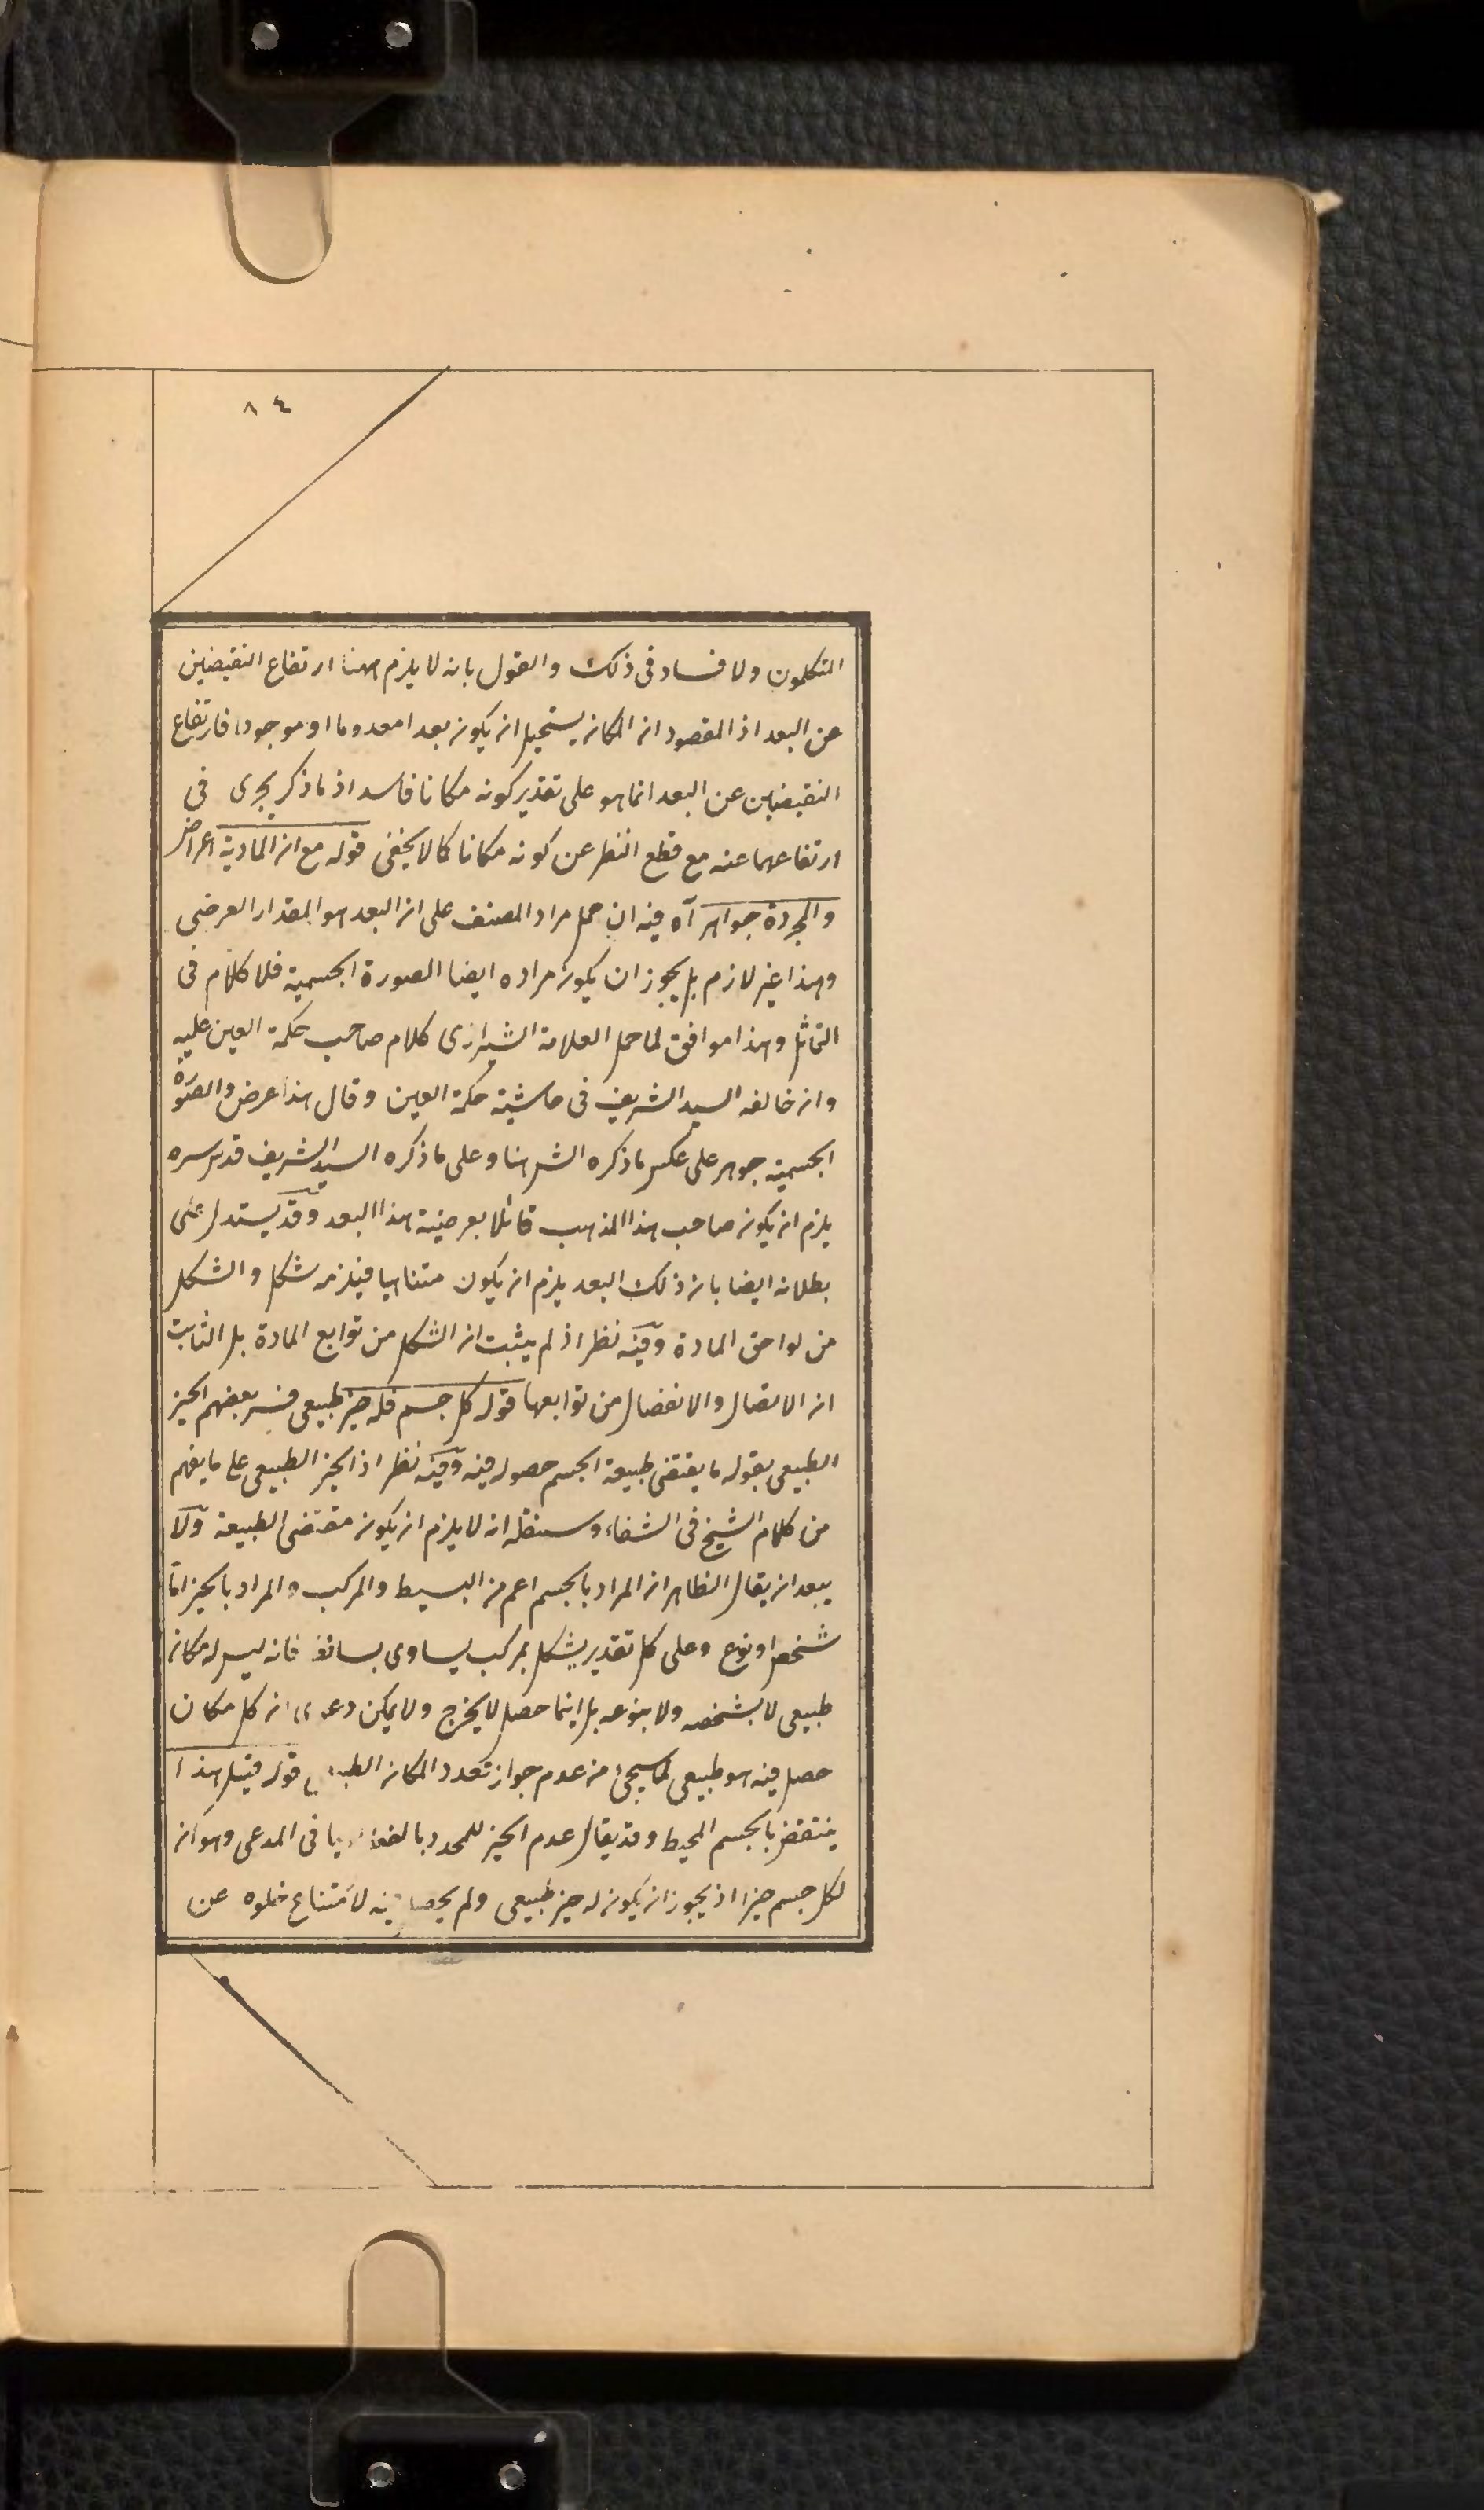 ٨٤
المتكلمون ولا فساد فى ذلك والقول بانه لا يلزم ههنا ارتفاع النقيضين
عن البعد اذ المقصود ان المكان يستحيل ان يكون بعدا معدوما او موجودا فارتفاع
النقيضين عن البعد انما هو على تقدير كونه مكانا فاسد اذ ما ذكر يجرى فى
ارتفاعهما عنه مع قطع النظر عن كونه مكانا كما لا يخفى قوله مع ان المادية اعراض
والمجردة جواهر آه فيه ان حمل مراد المصنف على ان البعد هو المقدار العرضى
وهذا غير لازم بل يجوز ان يكون مراده ايضا الصورة الجسمية فلا كلام فى
التماثل وهذا موافق لما حمل العلامة الشيرازى كلام صاحب حكمة العين عليه
وان خالفه السيد الشريف فى حاشية حكمة العين وقال هذا عرض والصورة
الجسمية جوهر على عكس ما ذكره الش هنا وعلى ما ذكره السيد الشريف قدس سره
يلزم ان يكون صاحب هذا المذهب قائلا بعرضية هذا البعد وقد يستدل على
بطلانه ايضا بان ذلك البعد يلزم ان يكون متناهيا فيلزمه شكل والشكل
من لواحق المادة وفيه نظر اذ لم يثبت ان الشكل من توابع المادة بل الثابت
ان الاتصال والانفصال من توابعها قوله كل جسم فله حيز طبيعى فسر بعضهم الحيز
الطبيعى بقوله ما يقتضى طبيعة الجسم حصوله فيه وفيه نظر اذ الحيز الطبيعى على ما يفهم
من كلام الشيخ فى الشفاء وسننقله انه لا يلزم ان يكون مقتضى الطبيعة ولا
يبعد ان يقال الظاهر ان المراد بالجسم اعم من البسيط والمركب والمراد بالحيز اما
شخص او نوع وعلى كل تقدير يشكل بمركب يساوى بسائطه فانه ليس له مكان
طبيعى لا بشخصه ولا بنوعه بل اينما حصل لا يخرج ولا يمكن دعوى ان كل مكان
حصل فيه هو طبيعى لما سيجئ من عدم جواز تعدد المكان الطبيعى قوله قيل هذا
ينتقض بالجسم المحيط وقد يقال عدم الحيز للمحدد بالفعل لا ينافى المدعى وهو ان
لكل جسم حيزا اذ يجوز ان يكون له حيز طبيعى ولم يحصل فيه لامتناع خلوه عن